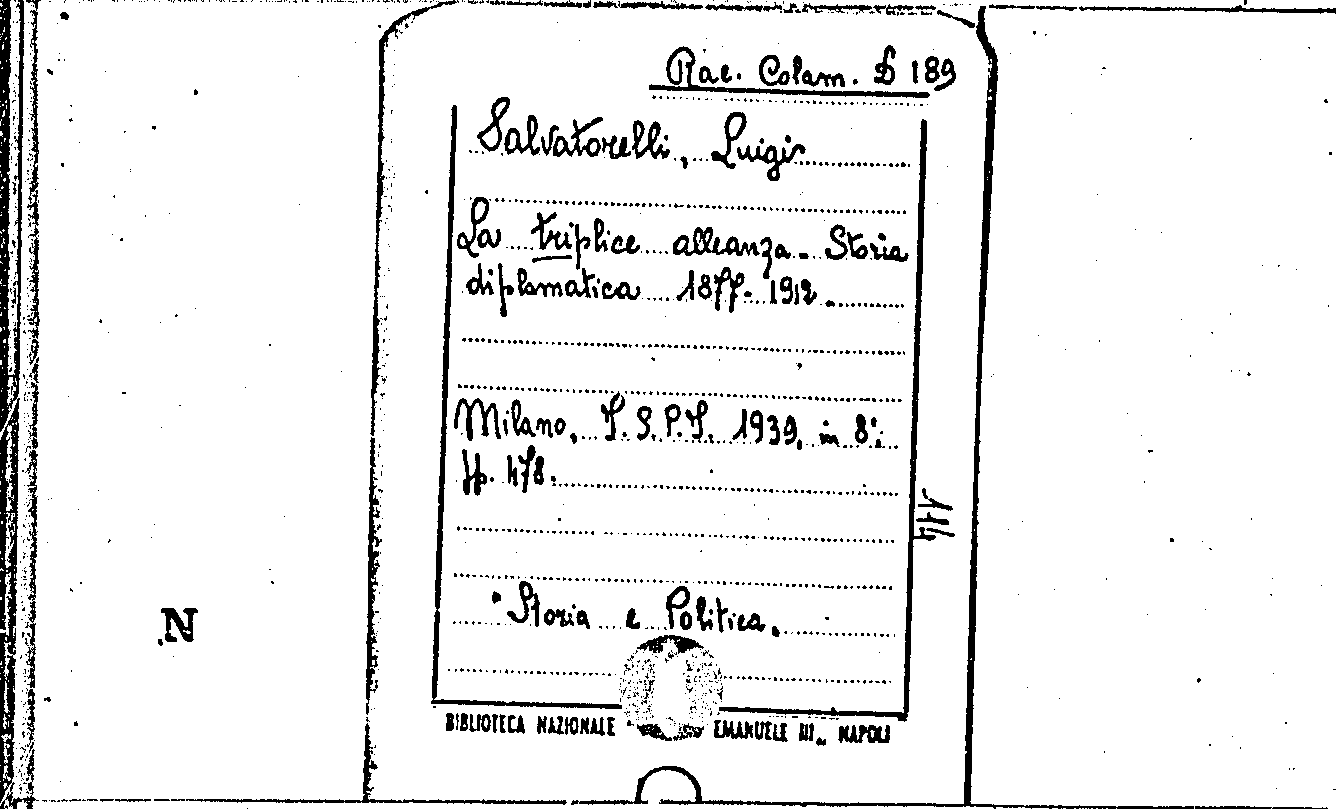 Rac. Colam. D 189
Salvatorelli, Luigi
La triplice alleanza. Storia
diplomatica 1877-1912.
Milano, I.S.P.I. 1939, in 8°,
pp. 478.
Storia e Politica.
N
BIBLIOTECA NAZIONALE EMANUELE III„ NAPOLI